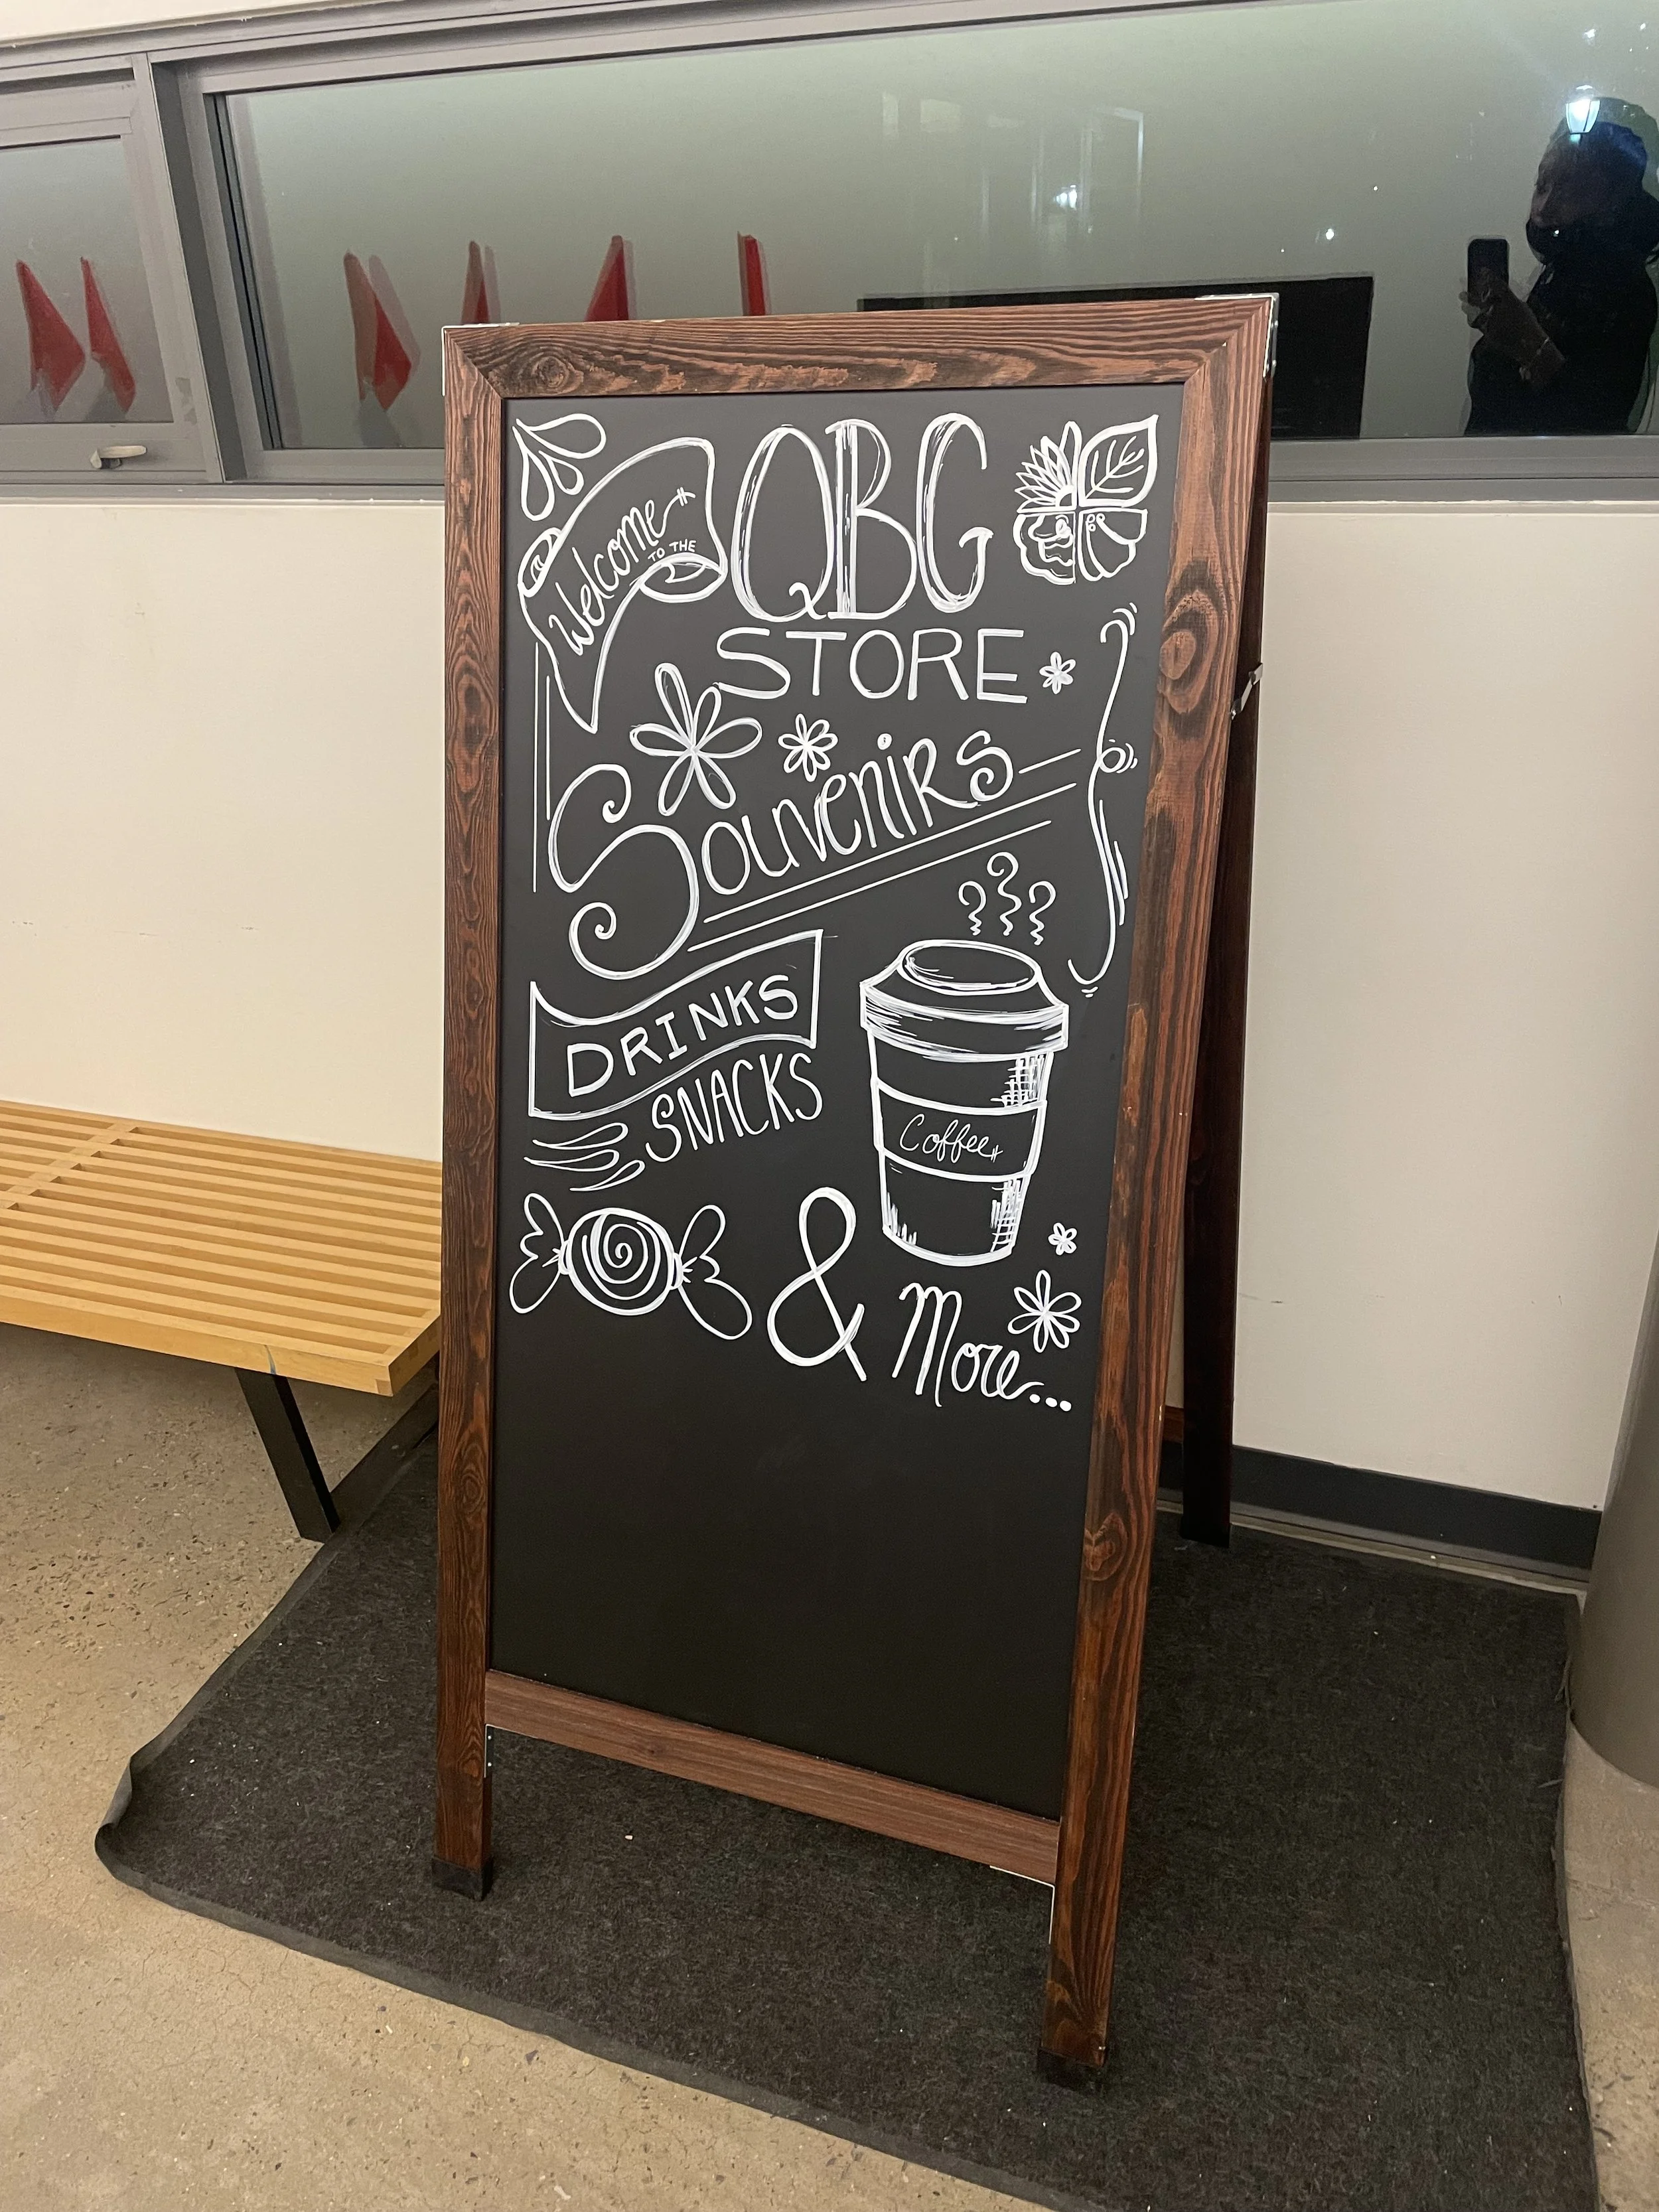 Welcome
TO THE
QBG
STORE
Souvenirs
DRINKS
SNACKS
Coffee
& More...